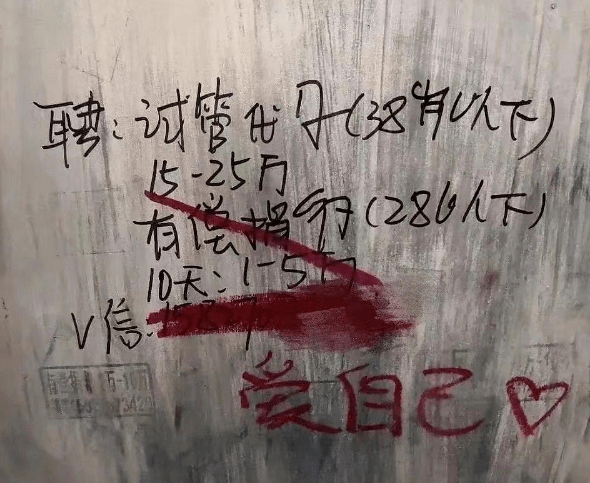 聘:试管代孕(38岁以下)
15-25万
有偿捐卵(28以下)
10天:1-5万
V信:158
爱自己♡
5-10万